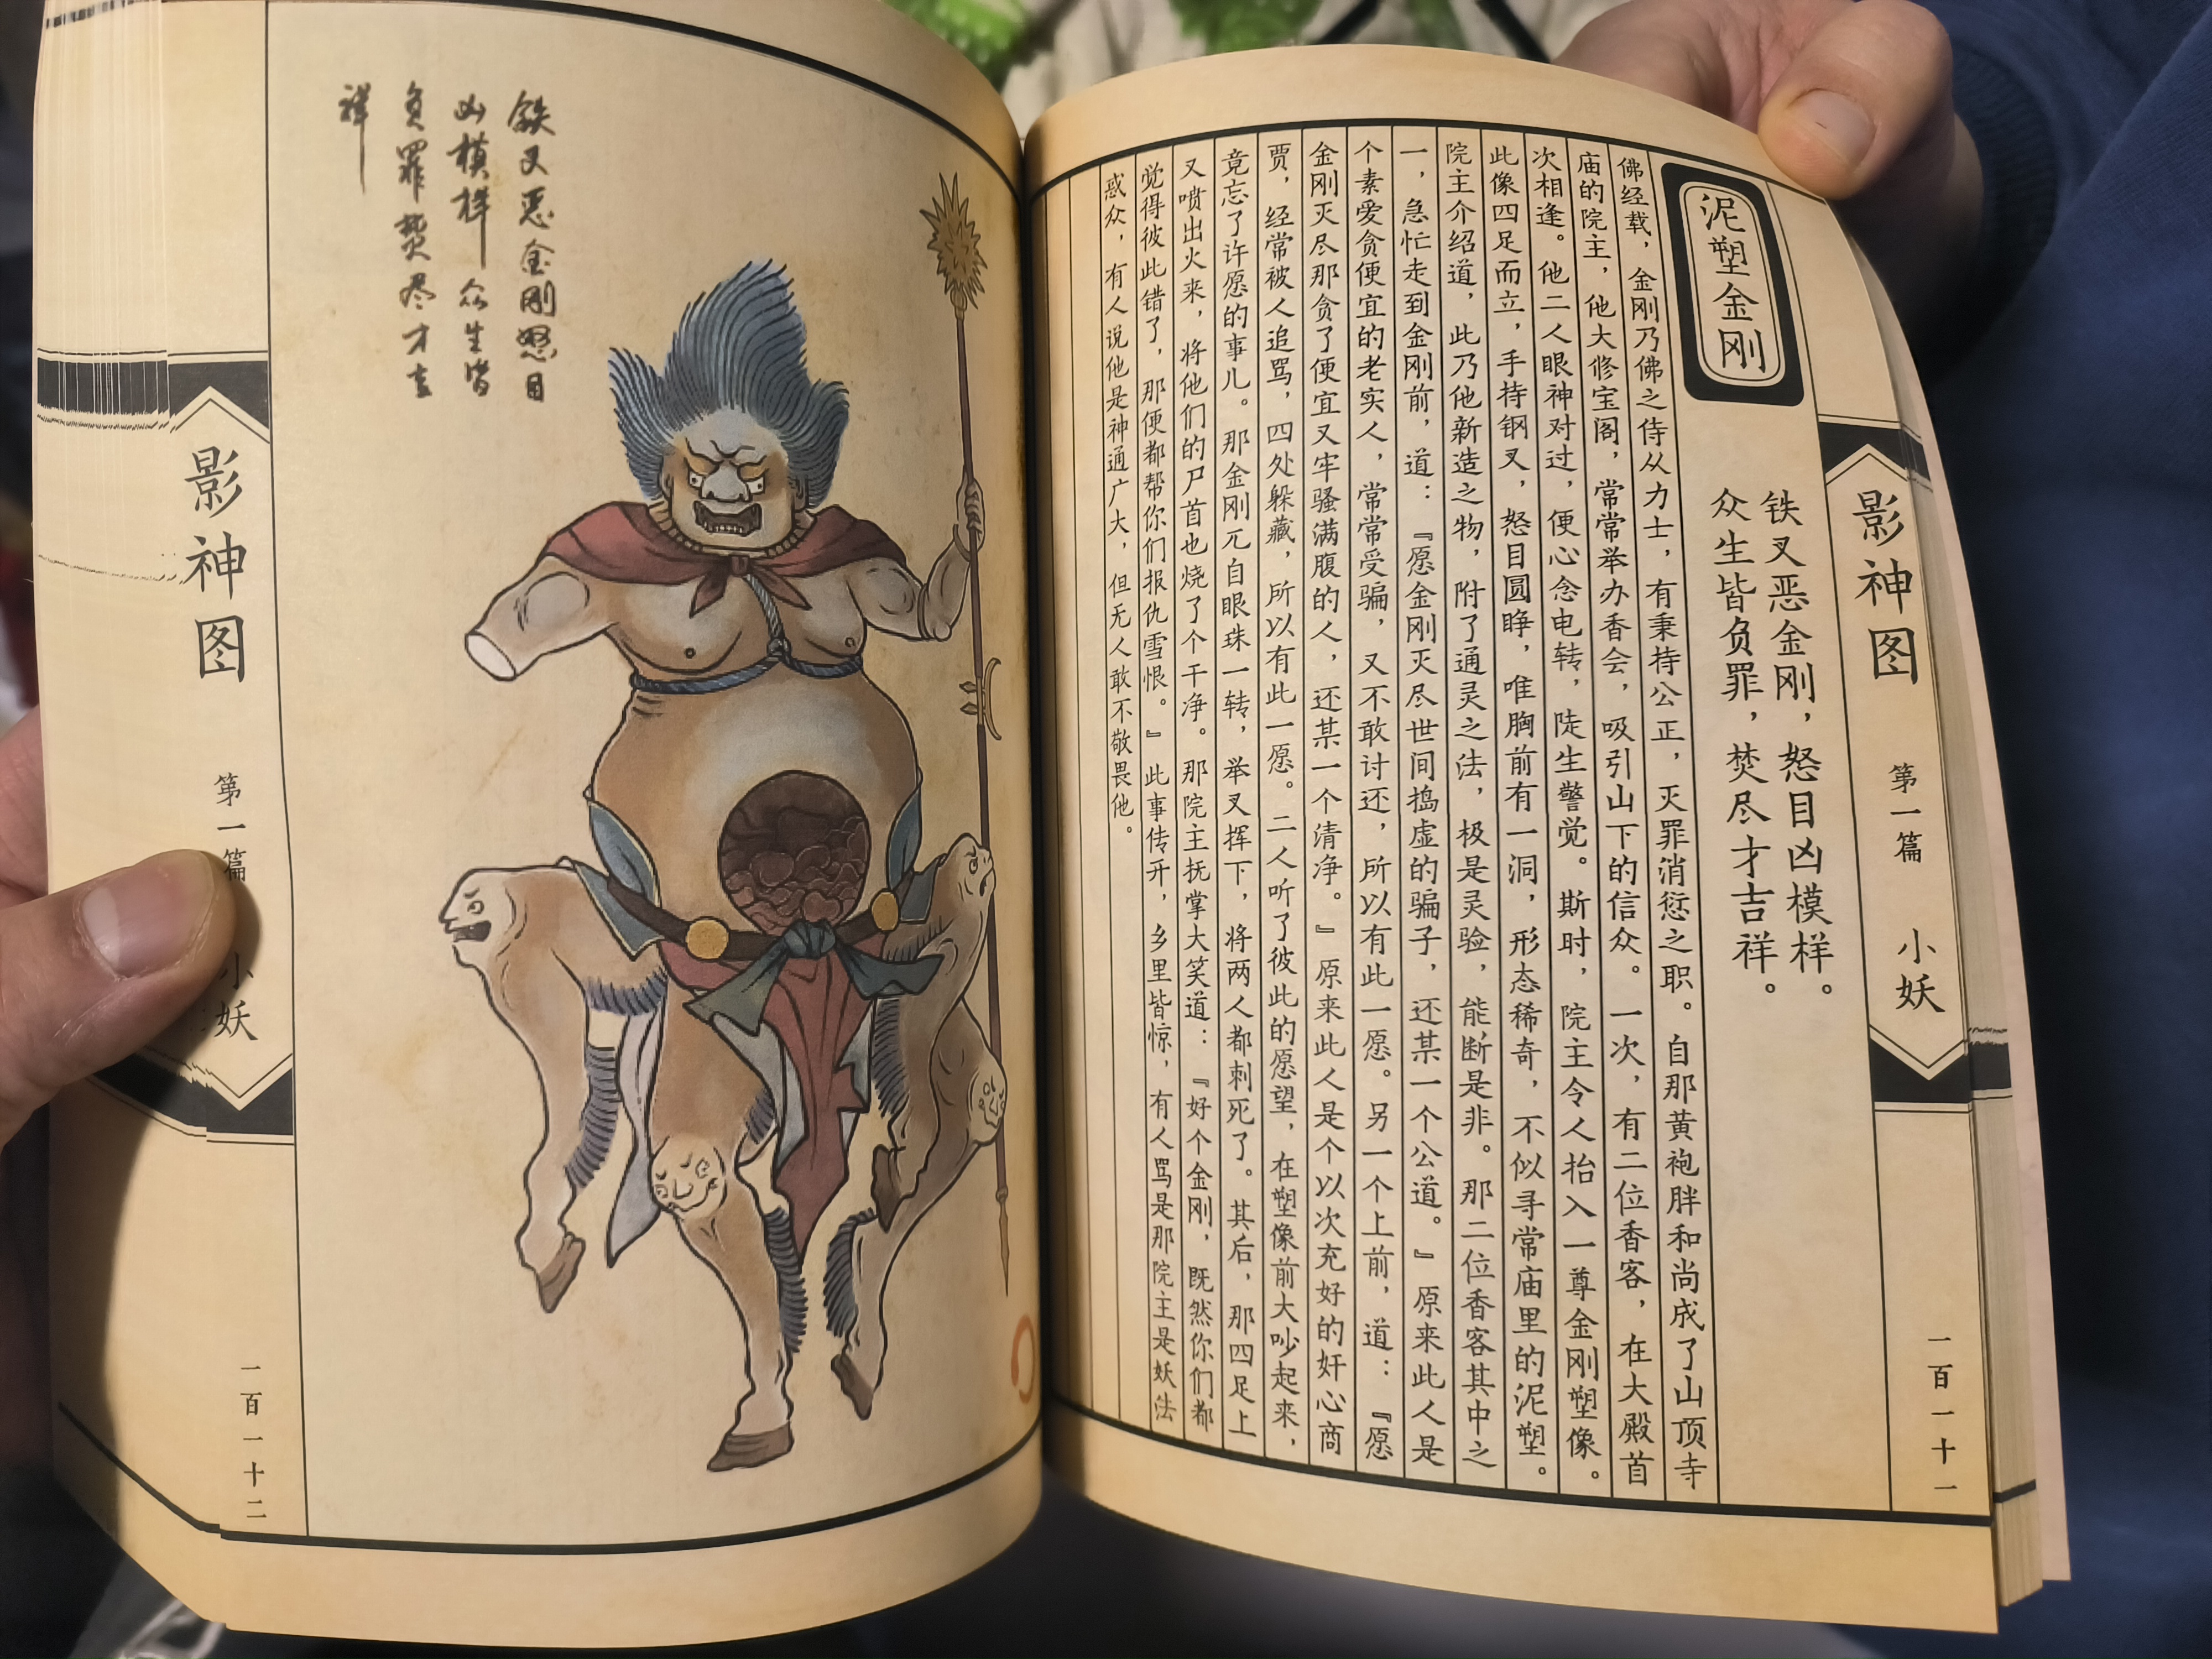 影神图
第一篇
小妖
一百一十一
泥塑金刚
铁叉恶金刚，怒目凶模样。
众生皆负罪，焚尽才吉祥。
佛经载，金刚乃佛之侍从力士，有秉持公正，灭罪消愆之职。自那黄袍胖和尚成了山顶寺
庙的院主，他大修宝阁，常常举办香会，吸引山下的信众。一次，有二位香客，在大殿首
次相逢。他二人眼神对过，便心念电转，陡生警觉。斯时，院主令人抬入一尊金刚塑像。
此像四足而立，手持钢叉，怒目圆睁，唯胸前有一洞，形态稀奇，不似寻常庙里的泥塑。
院主介绍道，此乃他新造之物，附了通灵之法，极是灵验，能断是非。那二位香客其中之
一，急忙走到金刚前，道：『愿金刚灭尽世间捣虚的骗子，还某一个公道。』原来此人是
个素爱贪便宜的老实人，常常受骗，又不敢讨还，所以有此一愿。另一个上前，道：『愿
金刚灭尽那贪了便宜又牢骚满腹的人，还某一个清净。』原来此人是个以次充好的奸心商
贾，经常被人追骂，四处躲藏，所以有此一愿。二人听了彼此的愿望，在塑像前大吵起来，
竟忘了许愿的事儿。那金刚兀自眼珠一转，举叉挥下，将两人都刺死了。其后，那四足上
又喷出火来，将他们的尸首也烧了个干净。那院主抚掌大笑道：『好个金刚，既然你们都
觉得彼此错了，那便都帮你们报仇雪恨。』此事传开，乡里皆惊，有人骂是那院主是妖法
惑众，有人说他是神通广大，但无人敢不敬畏他。
铁叉恶金刚怒目
凶模样众生皆
负罪焚尽才吉
祥
影神图
第一篇
小妖
一百一十二